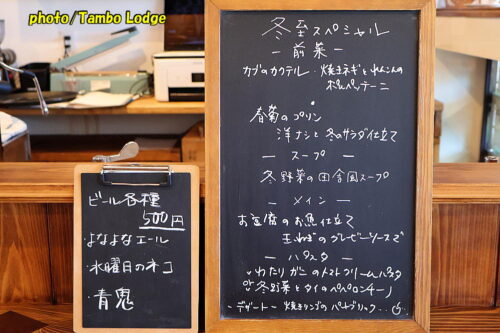 photo/Tambo Lodge
冬至スペシャル
－前菜－
カブのカクテル・焼きネギとれんこんの
春菊のプリン
洋ナシと冬のサラダ仕立て
－ スープ －
冬野菜の田舎風スープ
－ メイン －
お豆腐のお魚仕立て
玉ねぎのグレービーソースで
－ パスタ －
わたりガニのトマトクリームパスタ
冬野菜とタイのペペロンチーノ
－デザート－ 焼きリンゴの
ビール各種
500円
・よなよなエール
・水曜日のネコ
・青鬼